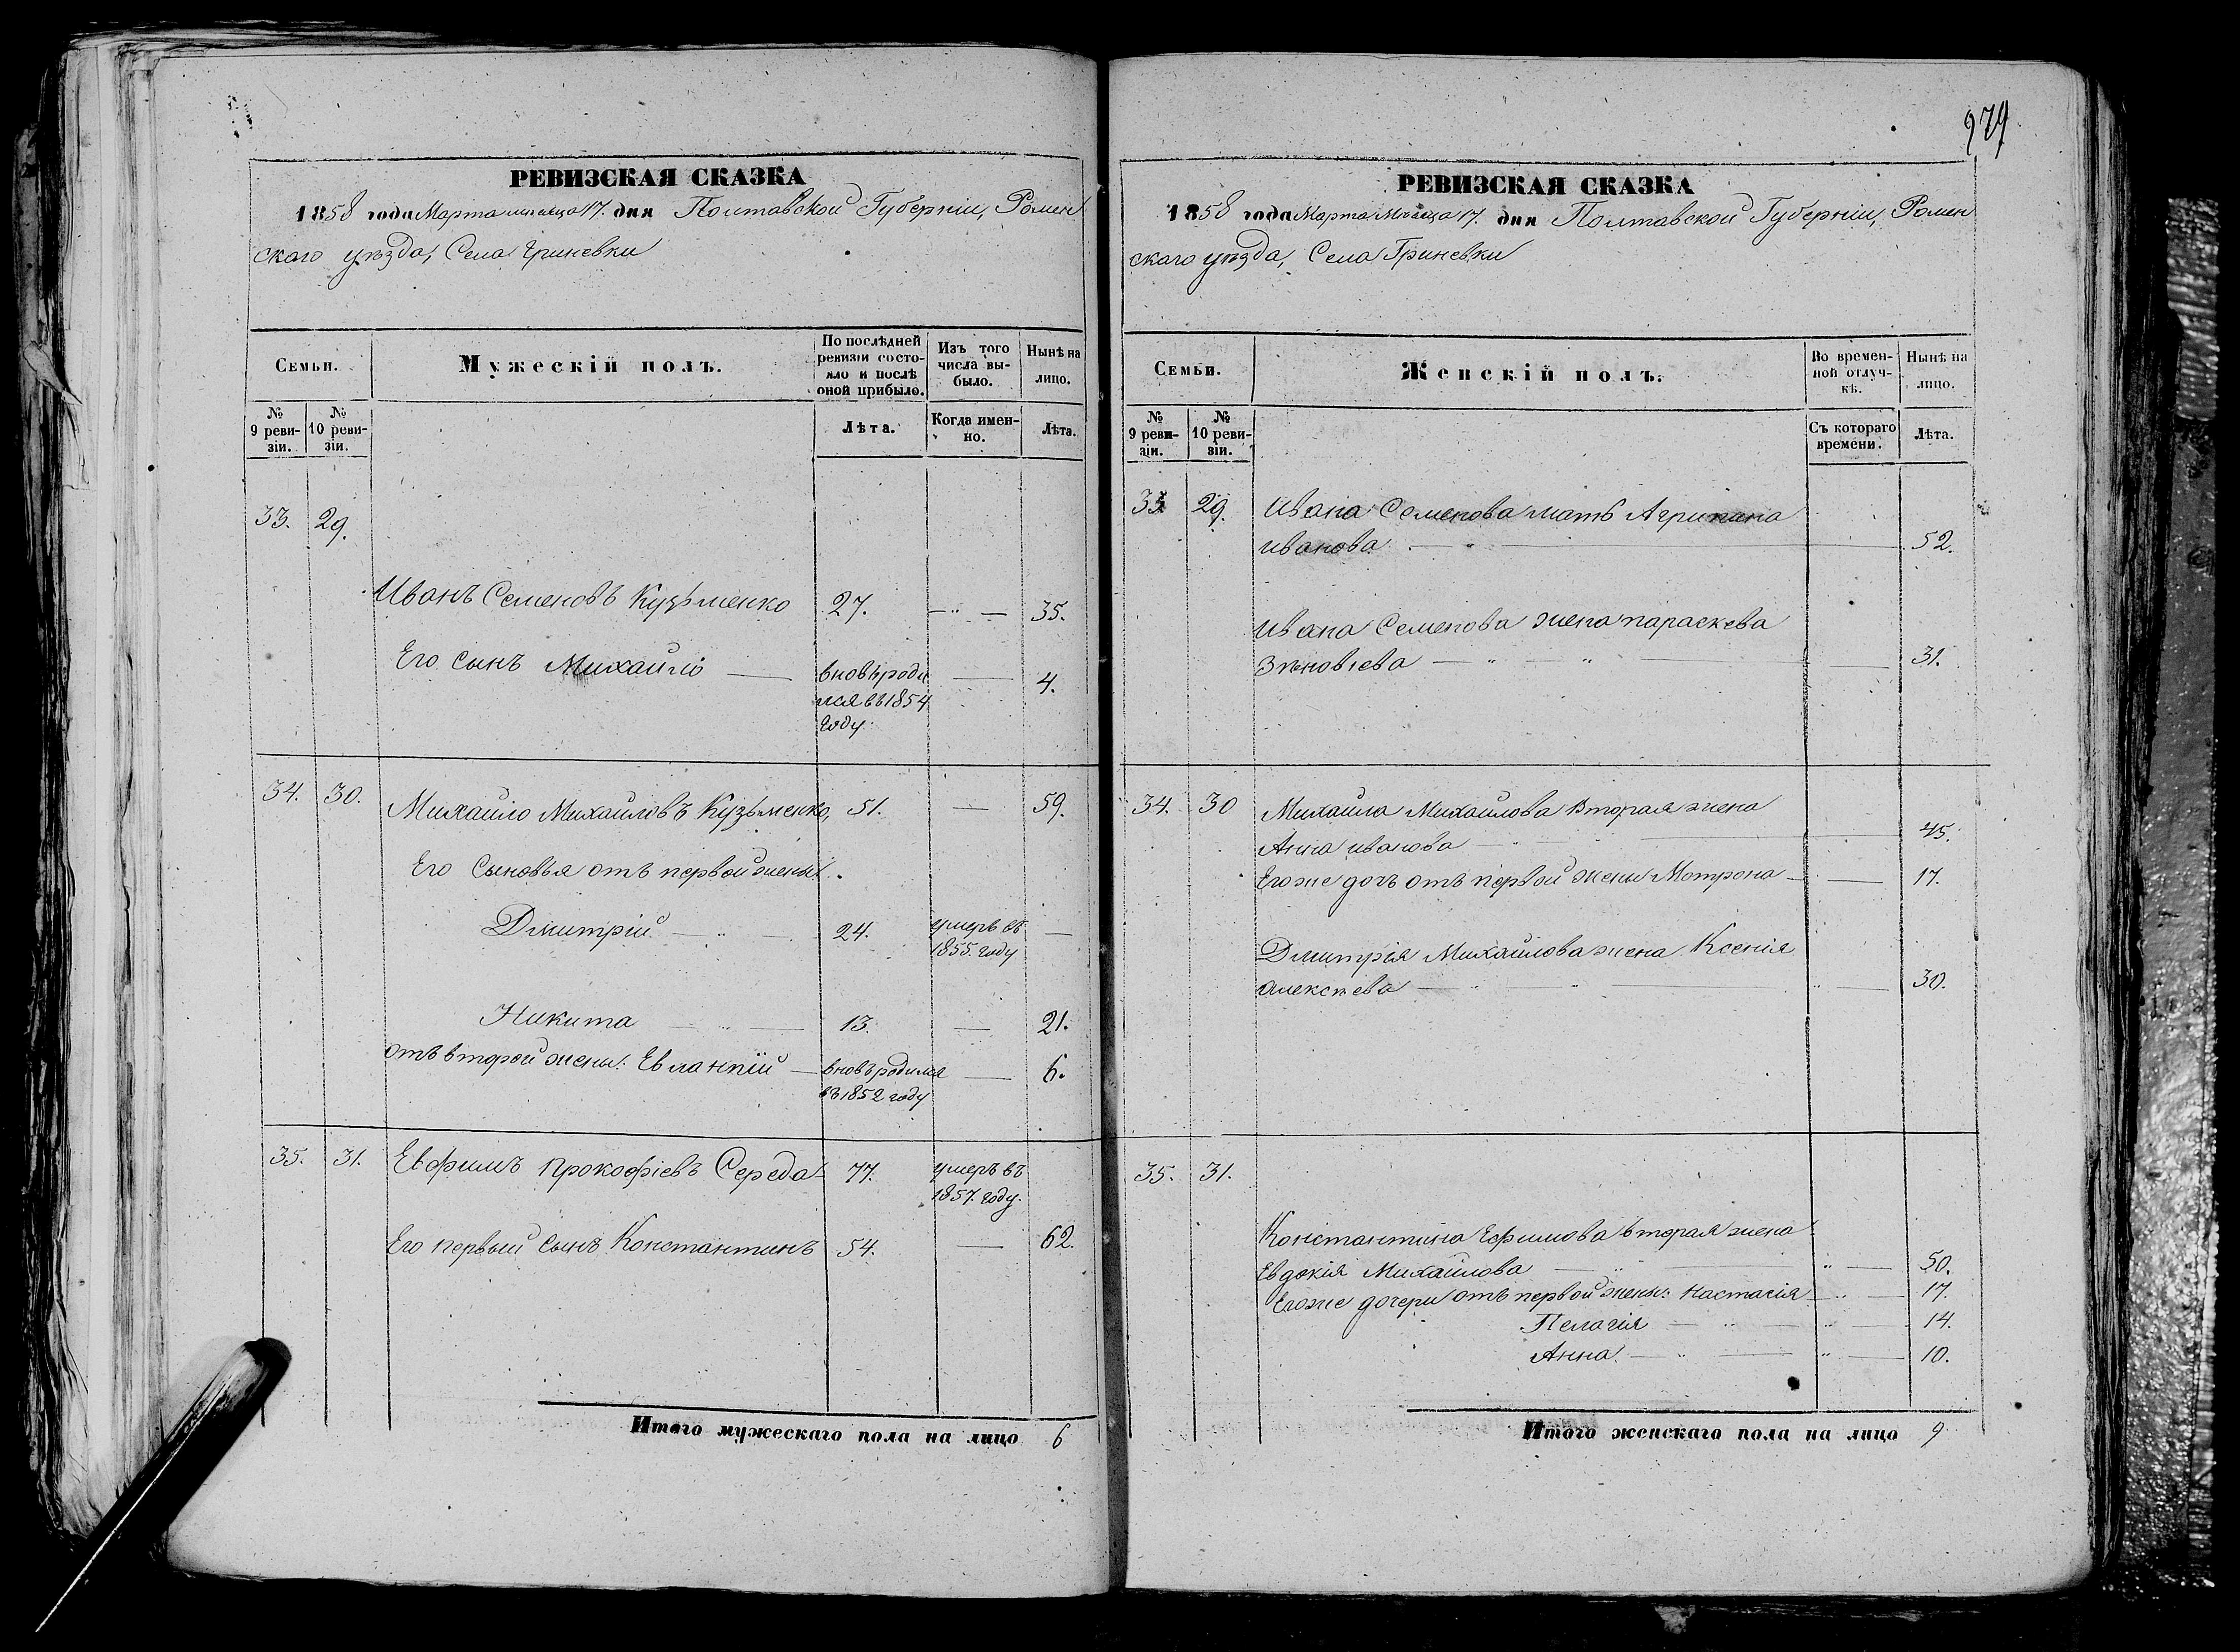 РЕВИЗСКАЯ СКАЗКА
1858 года Марта месяца 17. дня Полтавской Губерніи, Ромен
скаго уѣзда, Села Гриневки
Семьи.
Мужескій полъ.
По послѣдней ревизіи состояло и послѣ оной прибыло.
Изъ того числа выбыло.
Нынѣ на лицо.
№ 9 ревизіи.
№ 10 ревизіи.
Лѣта.
Когда именно.
Лѣта.
33. 29.
Иванъ Семеновъ Кузьменко 27. — " — 35.
Его сынъ Михайло — вновь роди — 4.
лся въ 1854
году
34. 30. Михайло Михайловъ Кузьменко, 51. — 59.
Его Сыновья отъ первой жены
Дмитрій — " — 24. умеръ въ —
1855. году
Никита — " — 13. — 21.
отъ второй жены: Евлампій — вновь родился — 6.
въ 1852 году
35. 31. Евфимъ Прокофіевъ Середа 77. умеръ въ
1857. году.
Его первый сынъ Константинъ 54. — 62.
Итого мужескаго пола на лицо 6
979
РЕВИЗСКАЯ СКАЗКА
1858 года Марта Месяца 17. дня Полтавской Губерніи, Ромен
скаго уѣзда, Села Гриневки
Семьи.
Женскій полъ.
Во временной отлучкѣ.
Нынѣ на лицо.
№ 9 ревизіи.
№ 10 ревизіи.
Съ котораго времени.
Лѣта.
33. 29. Ивана Семенова мать Агрипина
Иванова — " — 52.
Ивана Семенова жена Параскева
Зѣновіева — " " — 31.
34. 30 Михайла Михайлова Вторая жена
Анна Иванова — " — 45.
Его же дочь отъ первой жены Мотрона — 17.
Дмитрія Михайлова жена Ксенія
Алексѣева — " " — 30.
35. 31.
Константина Ефимова вторая жена
Евдокія Михайлова — " " — 50.
Его же дочери отъ первой жены: Настасія — " — 17.
Пелагія — " — " — 14.
Анна. — " — " — 10.
Итого женскаго пола на лицо 9